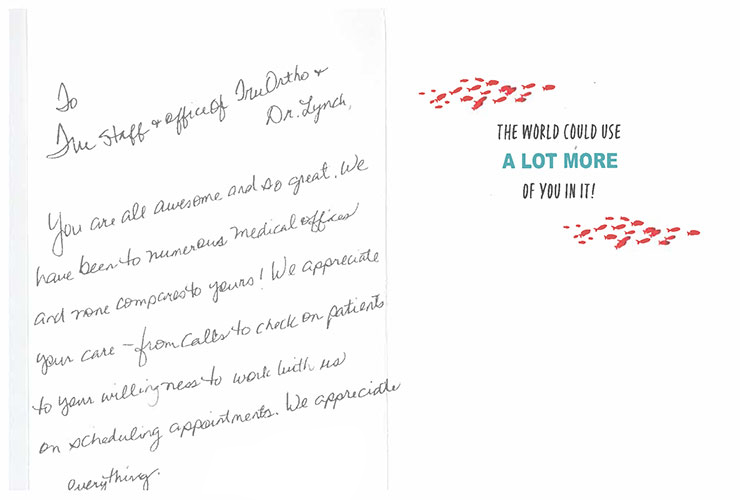 To
The Staff & office of TruOrtho &
Dr. Lynch,
You are all awesome and so great. We
have been to numerous medical offices
and none compares to yours! We appreciate
your care – from calls to check on patients
to your willingness to work with us
on scheduling appointments. We appreciate
everything.
THE WORLD COULD USE
A LOT MORE
OF YOU IN IT!